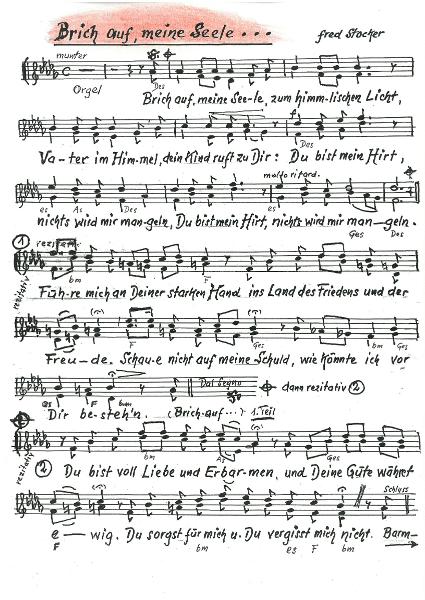 Brich auf, meine Seele... fred Stocker
munter
Orgel
Des
Brich auf, meine See-le, zum himm-lischen Licht,
Des
Va-ter im Him-mel, dein Kind ruft zu Dir: Du bist mein Hirt,
molto ritard.
es As Des
nichts wird mir man-geln, Du bist mein Hirt, nichts wird mir man-geln.
Ges Des
1 rezitativ
bm F
Füh-re mich an Deiner starken Hand ins Land des Friedens und der
Ges F bm Ges
Freu-de. Schau-e nicht auf meine Schuld, wie könnte ich vor
Dal Segno dann rezitativ 2
es F bm
Dir be-steh'n. (Brich auf...) 1. Teil
rezitativ
bm As Ges
2 Du bist voll Liebe und Erbar-men, und Deine Güte währet
Schluss
e-wig. Du sorgst für mich u. Du vergisst mich nicht. Barm-
F bm es F bm